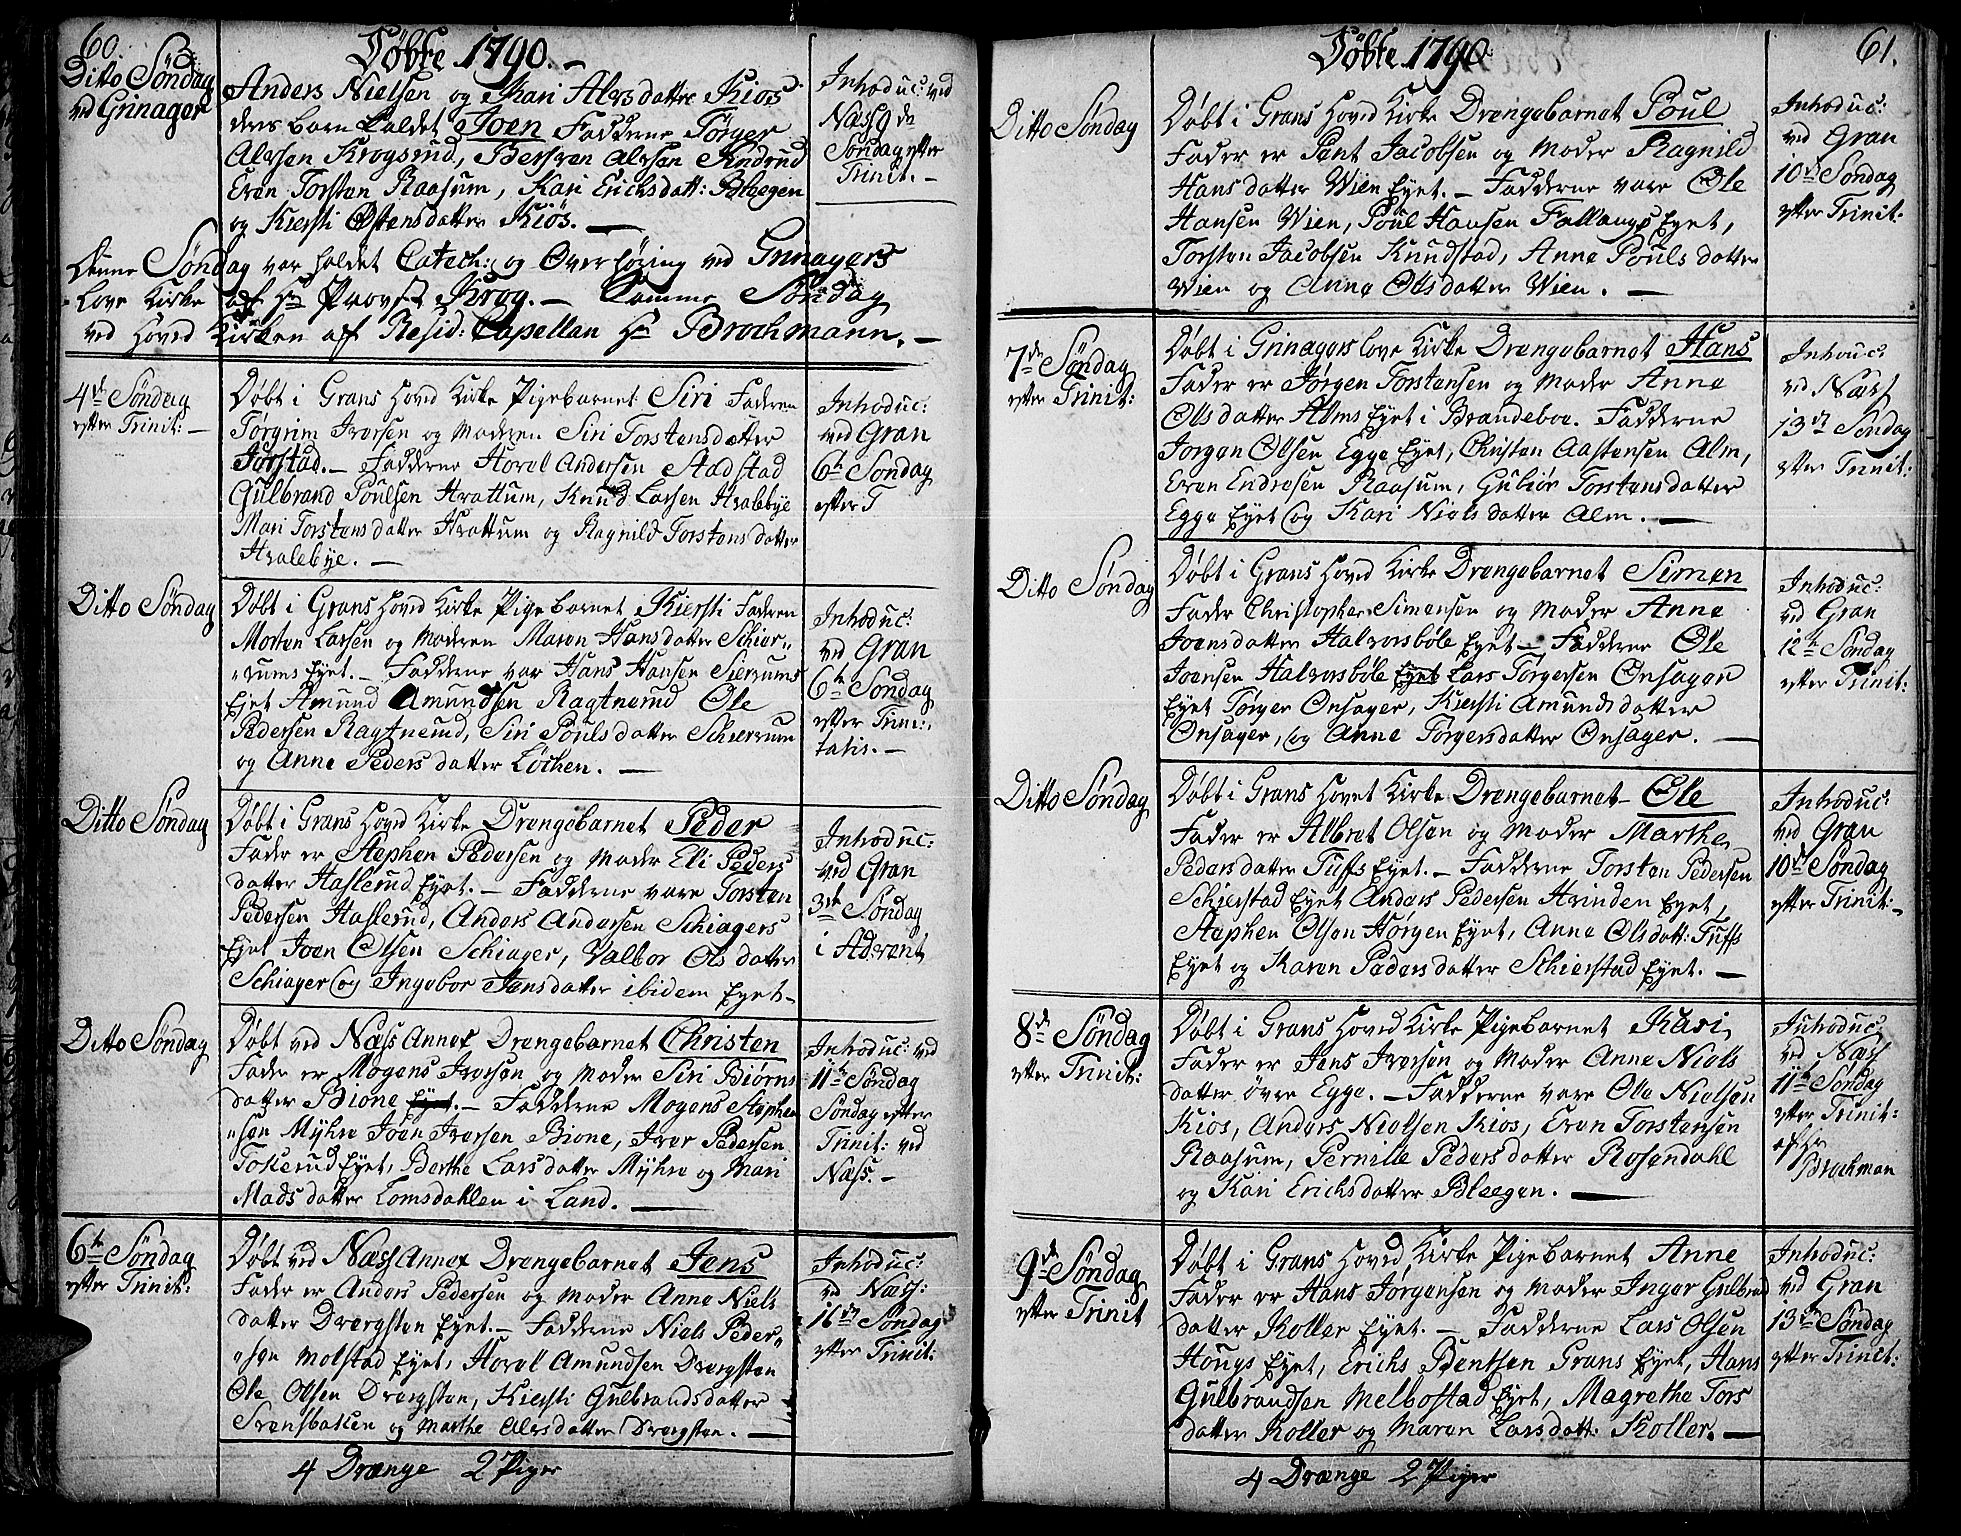 60.
Döbte 1790.-
Ditto Søndag
ved Grinager
Anders Nielsen og Kari Alvsdatter Kios
ders barn kaldet Joen Fadderne Törger
Alvsen Krogsrud, Bersven Alvsen
Even Torsten Raasum, Kari Erichsdatt: Bleegen
og Kiersti Østensdatter Kiös. —
Introduc: ved
Næss 9de
Søndag efter
Trinit. -
Denne Søndag var holdet Catech: og Overhøring ved Grinagers
Love Kirke af Hr Provst Krog. - Samme Søndag
ved Hoved Kirken af Resid: Capellan Hr Brochmann. -
4de Søndag
efter Trinit: -
Døbt i Grans Hoved Kirke Pigebarnet Siri Faderen
Törgrim Iversen og Moderen Siri Torstensdatter
Jorstad. - Fadderne Hovel Andersen Stadstad
Gulbrand Poulsen Hvattum, Knud Larsen Hvalebye
Mari Torstensdatter Hvattum og Ragnild Torstensdatter
Hvalebye. -
Introduc:
ved Gran
6te Søndag
efter T
Ditto Søndag
Døbt i Grans Hoved Kirke Pigebarnet Kiersti Faderen
Morten Larsen og Moderen Maren Hansdatter Schier„
„rums Eyet. - Fadderne var Hans Hansen Sierrums
Eyet Amund Amundsen Ragtnerud Ole
Pedersen Ragtnerud, Siri Poulsdatter Schierrum
og Anne Pedersdatter Løchen. —
Introduc:
ved Gran
6te Søndag
efter Trini:,
tatis. -
Ditto Søndag
Døbt i Grans Hoved Kirke Drengebarnet Peder
Fader er Stephen Pedersen og Moder Eli Peders
datter Haslerud Eyet. - Fadderne vare Torsten
Pedersen Haslerud, Anders Andersen Schiagers
Eyet Joen Olsen Schiager, Valbor Olsdatter
Schiager og Ingebor Jensdatter ibidem Eyet-
Introduc:
ved Gran
3de Søndag
i Advent
Ditto Søndag
Døbt ved Næss Annex Drengebarnet Christen
Fader er Mogens Iversen og Moder Siri Biørns
datter Bione Eyet. - Fadderne Mogens Stephen
„sen Myhre Joen Iversen Bione, Iver Pedersen
Tokerud Eyet, Berthe Larsdatter Myhre og Mari
Madsdatter Lomsdahlen i Land. —
Introduc: ved
11te Søndag
Søndag efter
Trinit: ved
Næss. -
6te Søndag
efter Trinit:
Døbt ved Næss Annex Drengebarnet Jens
Fader er Anders Pedersen og Moder Anne Niels
datter Dvergsten Eyet. - Fadderne Niels Peder„
„sen Molstad Eyet, Hovel Amundsen Dvergsten
Ole Olsen Dvergsten, Kiersti Gulbrandsdatter
Svensbakken og Marthe Alvsdatter Dvergsten. —
Introduc:
ved Næss:
16de Søndag
efter Trinit:
4 Drænge 2 Piger
61.
Döbte 1790.
Ditto Søndag
Døbt i Grans Hoved Kirke Drengebarnet Poul
Fader er Pent Jacobsen og Moder Ragnild
Hansdatter Wien Eyet. - Fadderne vare Ole
Hansen Wien, Poul Hansen Fallangs Eyet,
Torsten Jacobsen Knudstad, Anne Poulsdatter
Wien og Anne Olsdatter Wien. —
Introduc:
ved Gran
10de Søndag
efter Trinit:
7de Søndag
efter Trinit:
Døbt i Grinagers love Kirke Drengebarnet Hans
Fader er Jørgen Torstensen og Moder Anne
Olsdatter Alms Eyet i Brandeboe. Fadderne
Jorgen Olsen Egge Eyet, Christen Aastensen Alm,
Even Endresen Raasum, Gubiör Torstensdatter
Egge Eyet og Kari Nielsdatter Alm. —
Introuc:
ved Næss
13de Søndag
efter Trinit:
Ditto Søndag
Døbt i Grans Hoved Kirke Drengebarnet Simen
Fader Christopher Simensen og Moder Anne
Joensdatter Halvorsböle Eyet - Fadderne Ole
Joensen Halvorsböle Eyet Lars Törgersen Onsager
Eyet Törger Onsager, Kiersti Amundsdatter
Onsager, og Anne Törgersdatter Onsager. —
Introduc:
ved Gran
12te Søndag
efter Trinit:
Ditto Søndag
Døbt i Grans Hovet Kirke Drengebarnet- Ole
Fader er Albret Olsen og Moder Marthe
Pedersdatter Tuffs Eyet. - Fadderne Torsten Pedersen
Schierstad Eyet Anders Pedersen Hvinden Eyet,
Stephen Olsen Hørgen Eyet, Anne Olsdatt: Tuffs
Eyet og Karen Pedersdatter Schierstad Eyet. —
Introduc:
ved Gran
10de Søndag
efter Trinit: -
8de Søndag
efter Trinit:
Døbt i Grans Hoved Kirke Pigebarnet Kari,
Fader er Jens Iversen og Moder Anne Niels
datter övre Egge. - Fadderne vare Ole Nielsen
Kios, Anders Nielsen Kios, Even Torstensen
Raasum, Pernille Pedersdatter Rosendahl
og Kari Erichsdatter Bleegen. —
Introduc:
ved Næss
11te Søndag
efter Trinit:
af Hr
Brochman
9de Søndag
efter Trinit
Døbt i Grans Hoved Kirke Pigebarnet Anne
Fader er Hans Jørgensen og Moder Inger Gulbrnd
datter Koller Eyet. - Fadderne Lars Olsen
Hougs Eyet, Erichs Bentsen Grans Eyet, Hans
Gulbrandsen Melbostad Eyet, Magrethe Tors
datter Koller og Maren Larsdatt: Koller. —
Introduc:
ved Gran
13de Søndag
efter Trinit:
4 Drænge 2 Piger